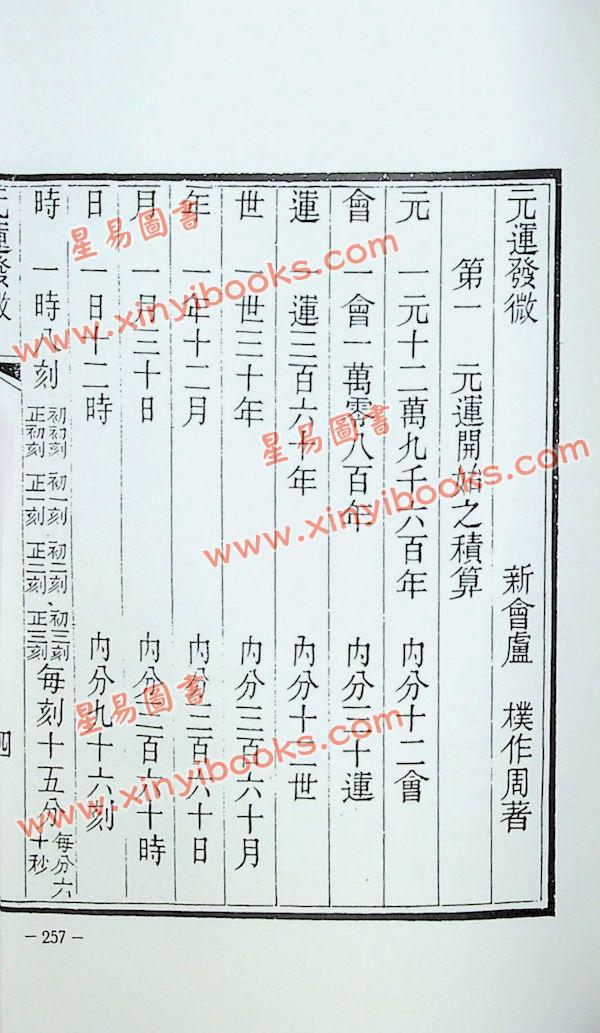 元運發微　新會盧　樸作周著
第一　元運開始之積算
元　一元十二萬九千六百年　內分十二會
會　一會一萬零八百年　內分三十運
運　一運三百六十年　內分十二世
世　一世三十年　內分三百六十月
年　一年十二月　內分三百六十日
月　一月三十日　內分三百六十時
日　一日十二時　內分九十六刻
時　一時八刻　初初刻　初一刻　初二刻　初三刻　正初刻　正一刻　正二刻　正三刻　每刻十五分　每分六十秒
元運發微
— 257 —
星易圖書
www.xinyibooks.com
星易圖書
www.xinyibooks.com
星易圖書
www.xinyibooks.com